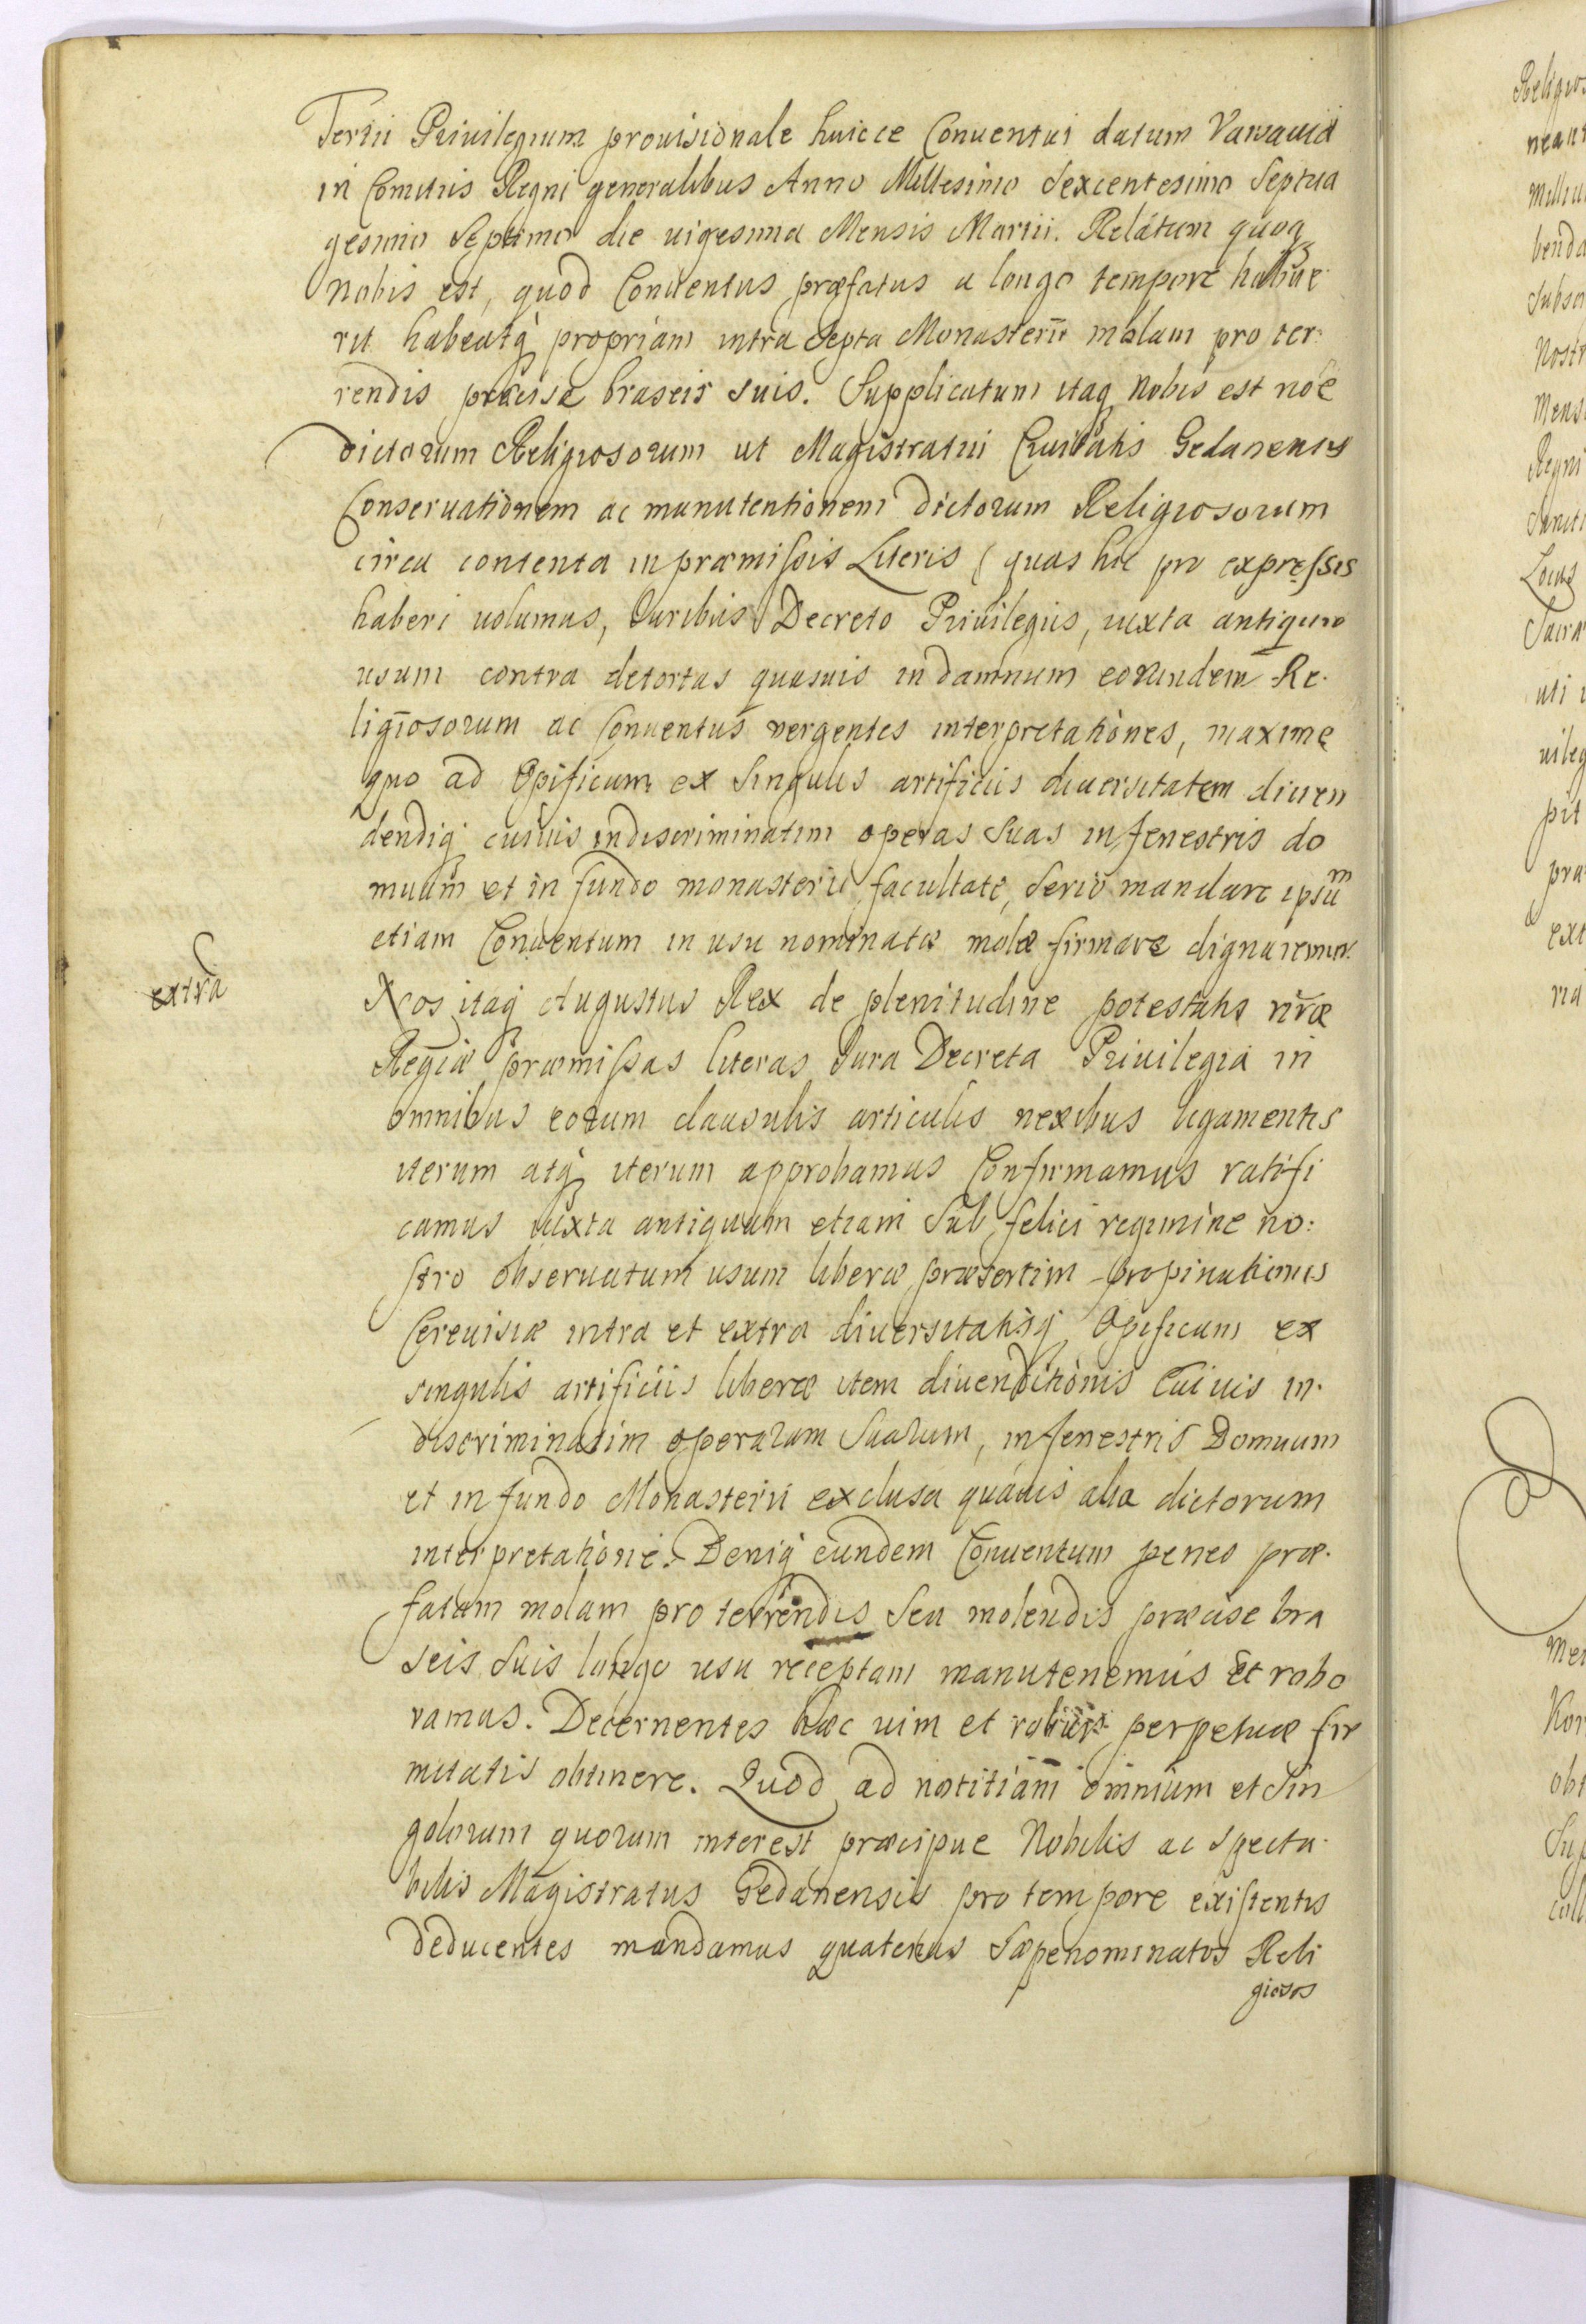 Tertii Priuilegium prouisionale huicce Conuentui datum Varsauiæ
in Comitiis Regni generalibus Anno Millesimo sexcentesimo Septua
gesimo septimo die uigesima Mensis Martii. Relatum quoq
nobis est, quod Conuentus præfatus a longo tempore habue
rit habeatq propriam intra septa Monasterii molam pro ter:
rendis præcise braseis suis. Supplicatum itaq nobis est noe
dictorum Religiosorum ut Magistratui Ciuitatis Gedanensis
Conseruationem ac manutentionem dictorum Religiosorum
circa contenta in præmissis Literis ( quas hic pro expressis
haberi uolumus, Iuribus Decreto Priuilegiis, iuxta antiquum
usum contra detortas quasuis in damnum eorundem Re.
ligiosorum ac Conuentus vergentes interpretationes, maxime
quo ad Opificum ex singulis artificiis diuersitatem diuen
dendiq cuiuis indiscriminatim operas suas in fenestris do
muum et in fundo monasterii facultate, serio mandare ipsum
etiam Conuentum in usu nominatæ molæ firmare dignaremur.
extra
Nos itaq Augustus Rex de plenitudine potestatis nræ
Regiæ præmissas literas Iura Decreta Priuilegia in
omnibus eorum clausulis articulis nexibus ligamentis
iterum atq iterum approbamus Confirmamus ratifi
camus iuxta antiquum etiam sub felici regimine no:
stro obseruatum usum liberæ præsertim propinationis
Cereuisiæ intra et extra diuersitatisq Opificum ex
singulis artificiis liberæ item diuenditionis cuiuis in.
discriminatim operarum suarum, in fenestris Domuum
et in fundo Monasterii exclusa quauis alia dictorum
interpretatione. Deniq eundem Conuentum penes præ.
fatam molam pro terrendis seu molendis præcise bra
seis suis longo usu receptam manutenemus et robo
ramus. Decernentes hæc uim et robur perpetuæ fir
mitatis obtinere. Quod ad notitiam omnium et sin
golorum quorum interest præcipue Nobilis ac specta.
bilis Magistratus Gedanensis pro tempore existentis
deducentes mandamus quatenus sæpenominatos Reli
giosos